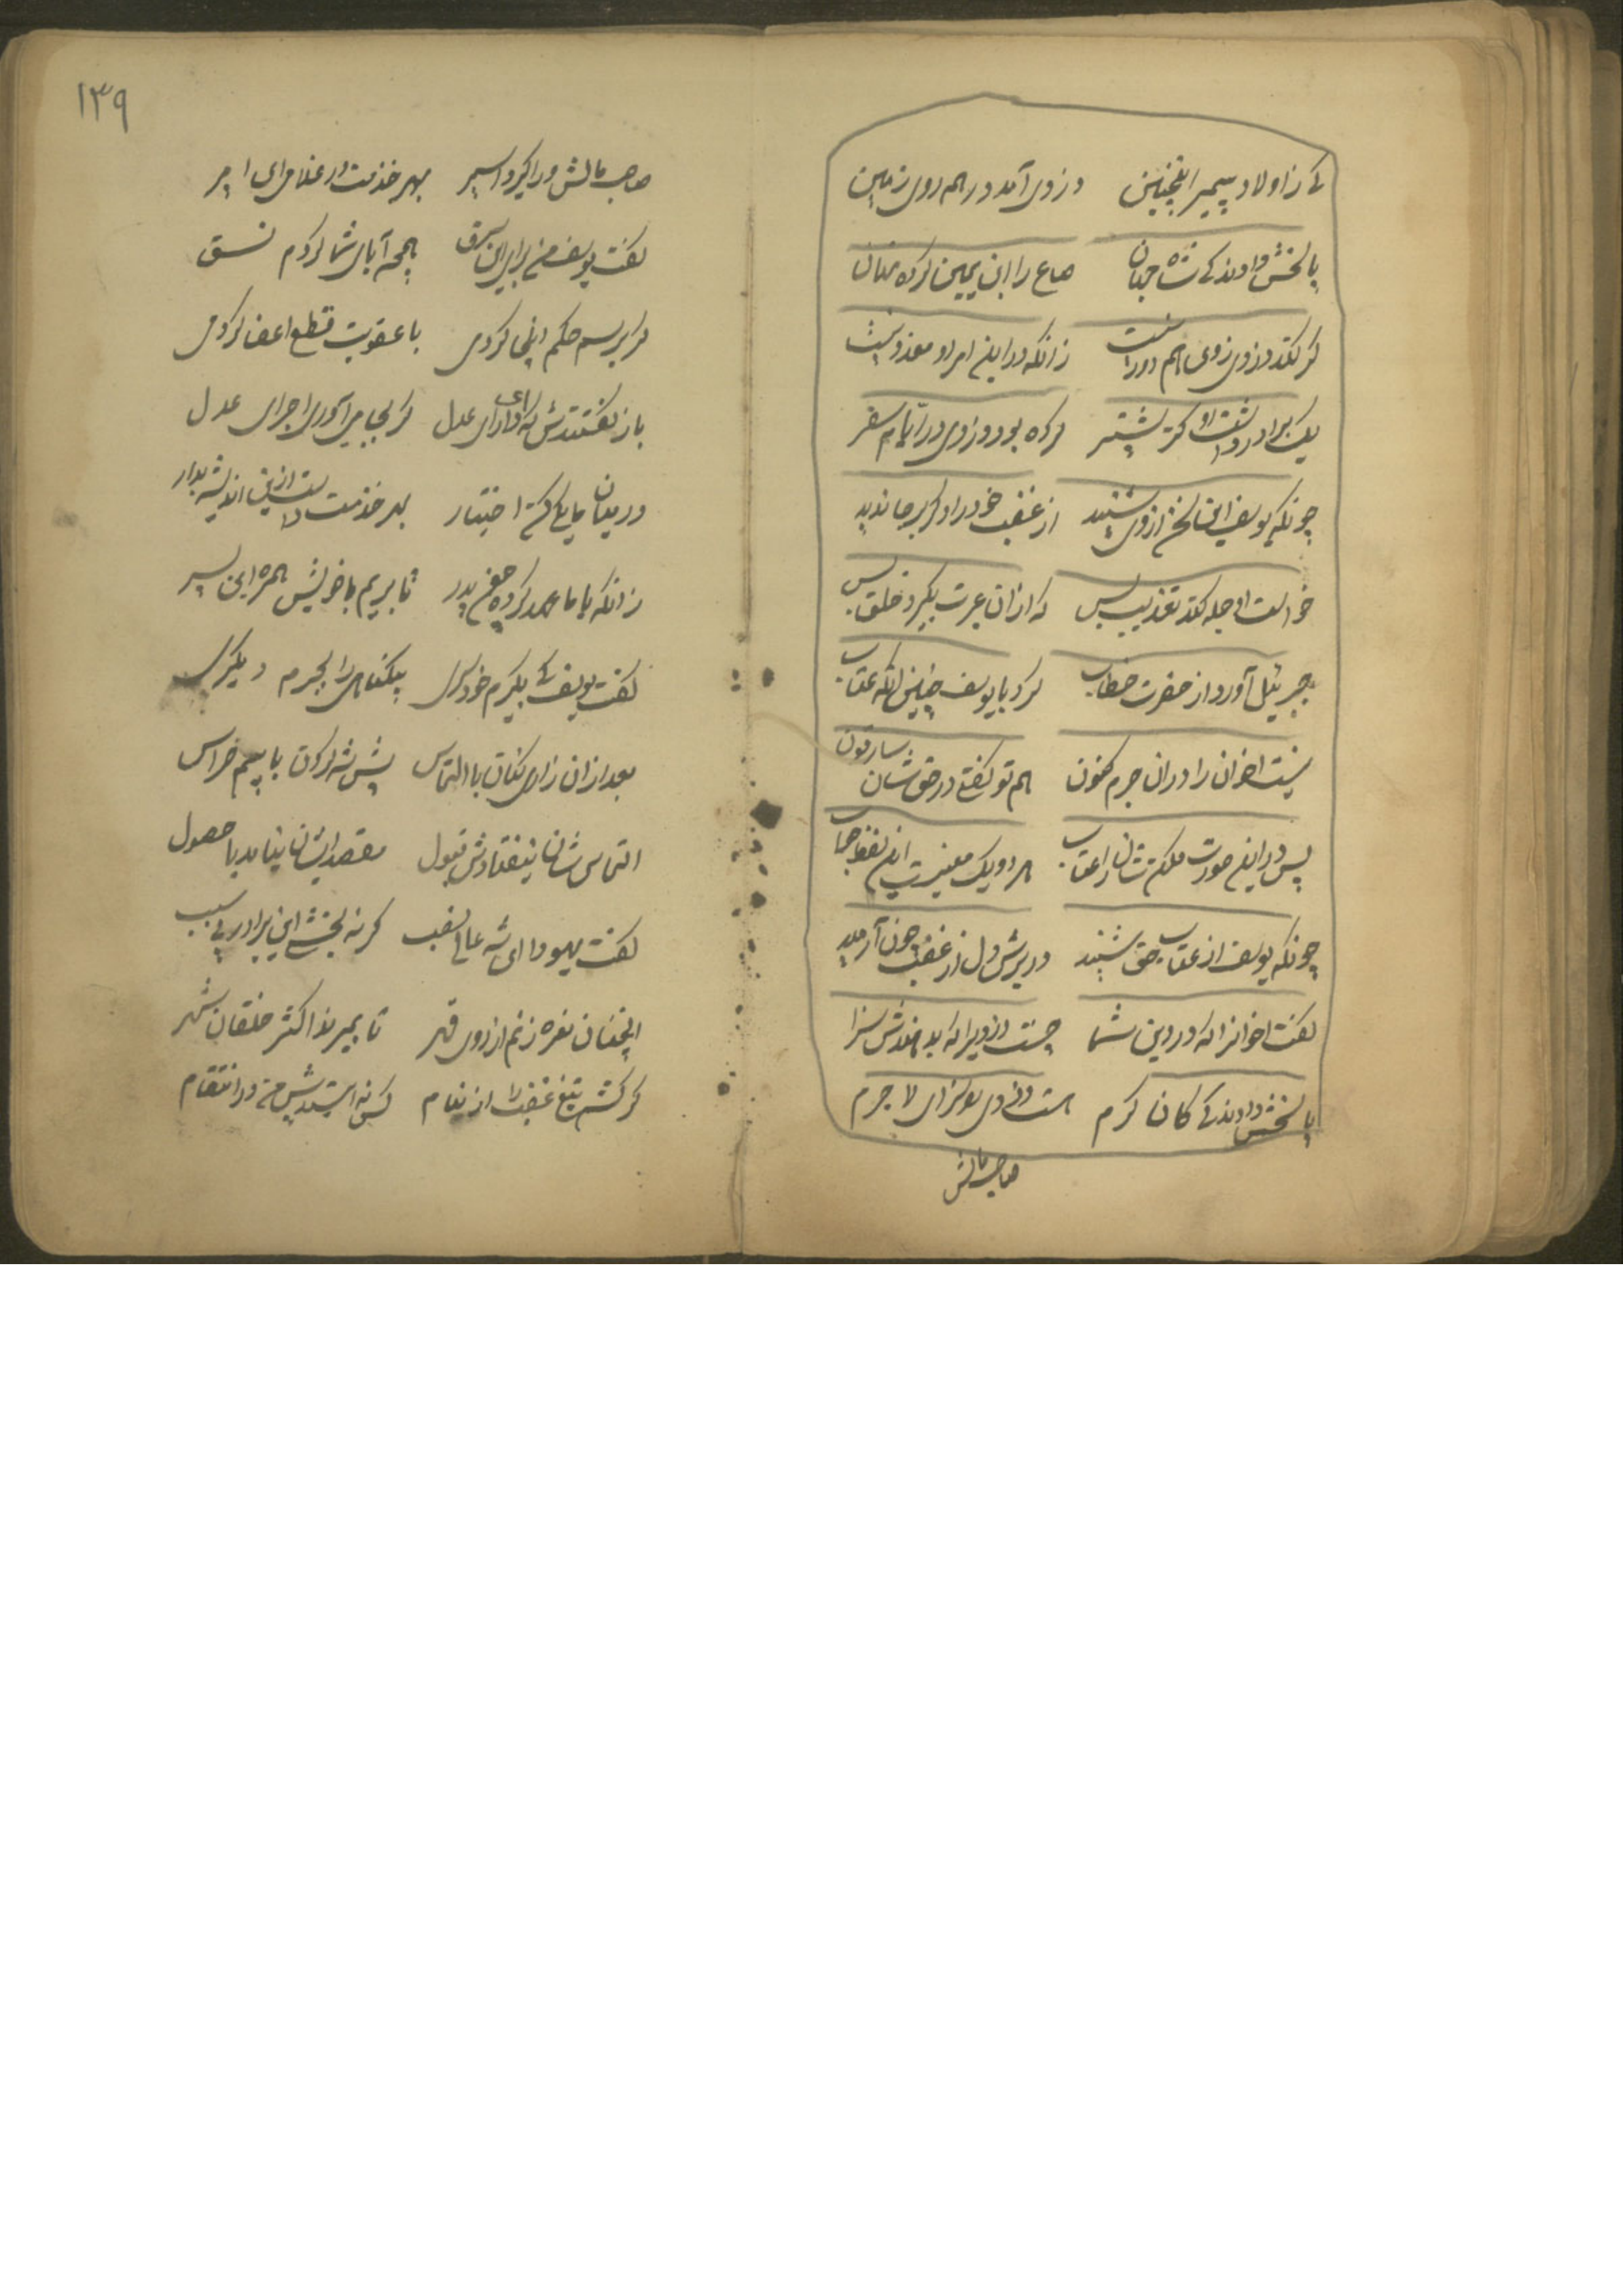 کی ز اولاد پیمبر اینچنین دزدی آمد در همه روی زمین
پاسخش دادند کی شاه جهان صاع را ابن یمین کرده نهان
گر کند دزدی زوی هم دور نیست زانکه در این امر او معذور نیست
یک برادر داشت او کز پیشتر کرده بود دزدی در ایام سفر
چونکه یوسف این سخن از وی شنید از غضب خود را دگر بر جا ندید
خواست او جمله کند تعذیب بس که از آن عبرت بگیرد خلق بس
جبرئیل آورد از حضرت خطاب کرد با یوسف چنین آنگه عتاب
نیست اخوان را در آن جرم کنون هم تو گفتی در حق شان سارقون
پس در این صورت مکن شان را عتاب
چونکه یوسف از عتاب حق شنید در برش دل از غضب چون آرمید
گفت اخوان را که در دین شما چیست دزدی را که بدهندش سزا
پاسخش دادند کی کان کرم هست دزدی را سزای لاجرم
صاحب مالش
۱۳۹
صاحب مالش ورا گیرد اسیر بهر خدمت در غلامی ای امیر
گفت یوسف من برای این سرق با همه آبای شما کردم نسق
گر برسم حکم اینجا کردمی با عقوبت قطع اعضا کردمی
باز گفتندش که ای دارای عدل گر بجا می‌آوری اجرای عدل
در میان ما یکی کن اختیار بهر خدمت دست از این اندیشه بدار
زانکه با ما عهد کرده چون پدر تا بریم با خویش همره این پسر
گفت یوسف کی بگیرم خود کسی بیگناهی را بجرم دیگری
بعد از آن زادی کنان با التماس پیش شه کردن با بیم هراس
التماس شان نیفتادش قبول مقصد ایشان نیامد با حصول
گفت یهودا ای شه عالی نسب گر نه بخشی این برادر بی سبب
اینچنان نعره زنم از روی قهر تا بمیرند اکثر خلقان شهر
گر کشم تیغ غضب را از نیام کس نه ایستد پیش من در انتقام